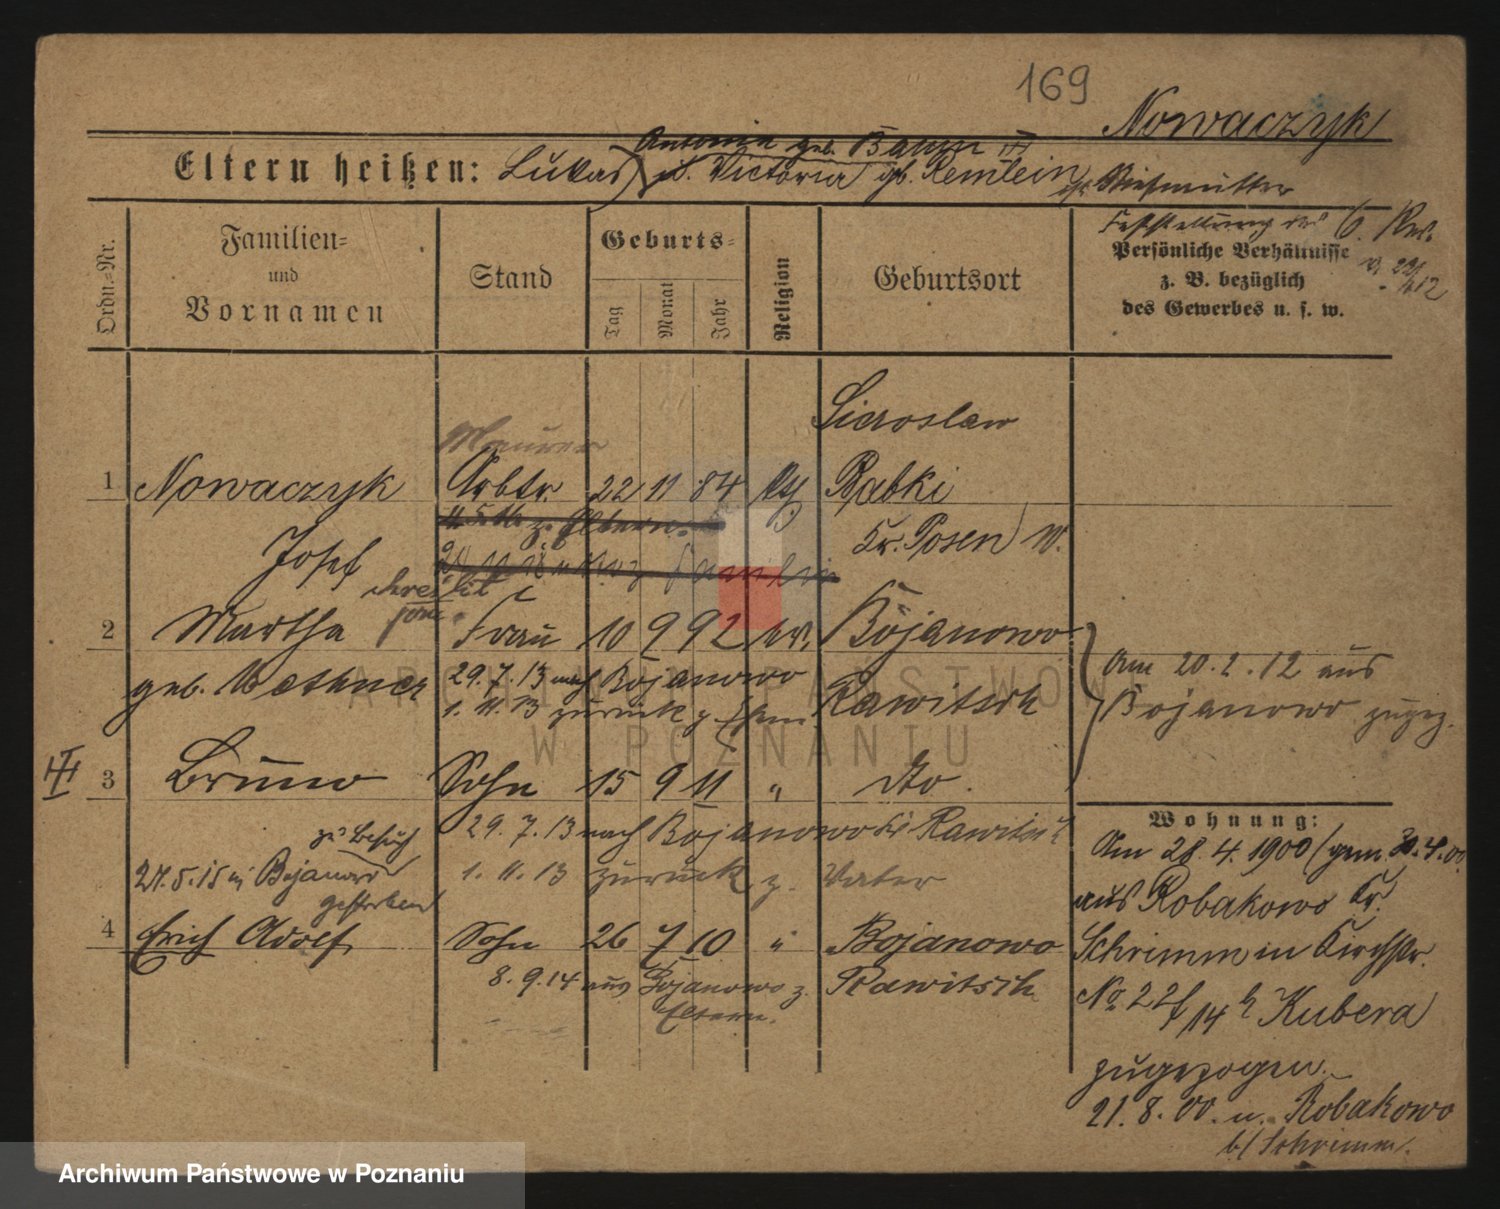 169
Nowaczyk
Antonie geb.
Eltern heißen: Lukas u. Victoria gb. Remlein Stiefmutter
Feststellung des 6. Rev.
v. 22/ 12
Ordn.-Nr.
Familien-
und
Vornamen
Stand
Geburts-
Tag
Monat
Jahr
Religion
Geburtsort
Persönliche Verhältnisse
z. B. bezüglich
des Gewerbes u. s. w.
Maurer
Sieroslaw
1 Nowaczyk Arbtr. 22 11 84 Rabki
z. Eltern.
Josef Kr. Posen W.
2 Martha Frau 10 9 92 ev. Bojanowo
geb. 29.7.13 nach Bojanowo Rawitsch
1. 11. 13 zurück z.
Am 20. 2. 12 aus
Bojanowo zugez.
III
3 Bruno Sohn 15 9 11 " dto.
29. 7. 13 nach Bojanowo Kr Rawitsch
zu Besuch
1. 11. 13 zurück z. Vater
5.15 in Bojanowo
gestorben
4 Erich Adolf Sohn 26 7 10 " Bojanowo
8. 9. 14 aus Bojanowo z. Rawitsch
Eltern.
Wohnung:
Am 28. 4. 1900 (gem. 30. 4. 00
aus Robakowo Kr.
Schrimm in Kirchstr.
No 22 /14 b Kubera
zugezogen.
21. 8. 00. n. Robakowo
b/ Schrimm.
ARCHIWUM PAŃSTWOWE
W POZNANIU
Archiwum Państwowe w Poznaniu